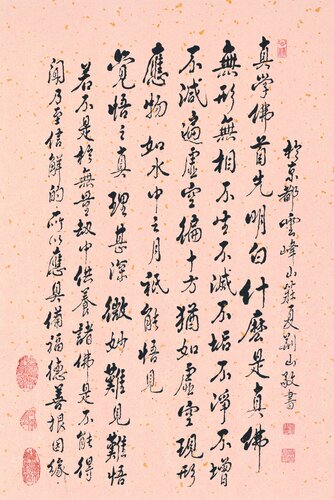 於京都雲峰山莊夏荊山敬書
真学佛首先明白什麼是真佛
無形無相不生不滅不垢不淨不增
不減遍虛空徧十方猶如虛空現形
應物如水中之月祇能悟見
覺悟之真理甚深微妙難見難悟
若不是於無量劫中供養諸佛是不能得
聞乃至信解的所以應具備福德善根因緣